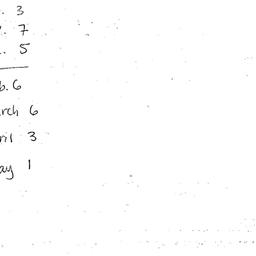 . 3
. 7
. 5
b. 6
rch 6
ril 3
ay 1